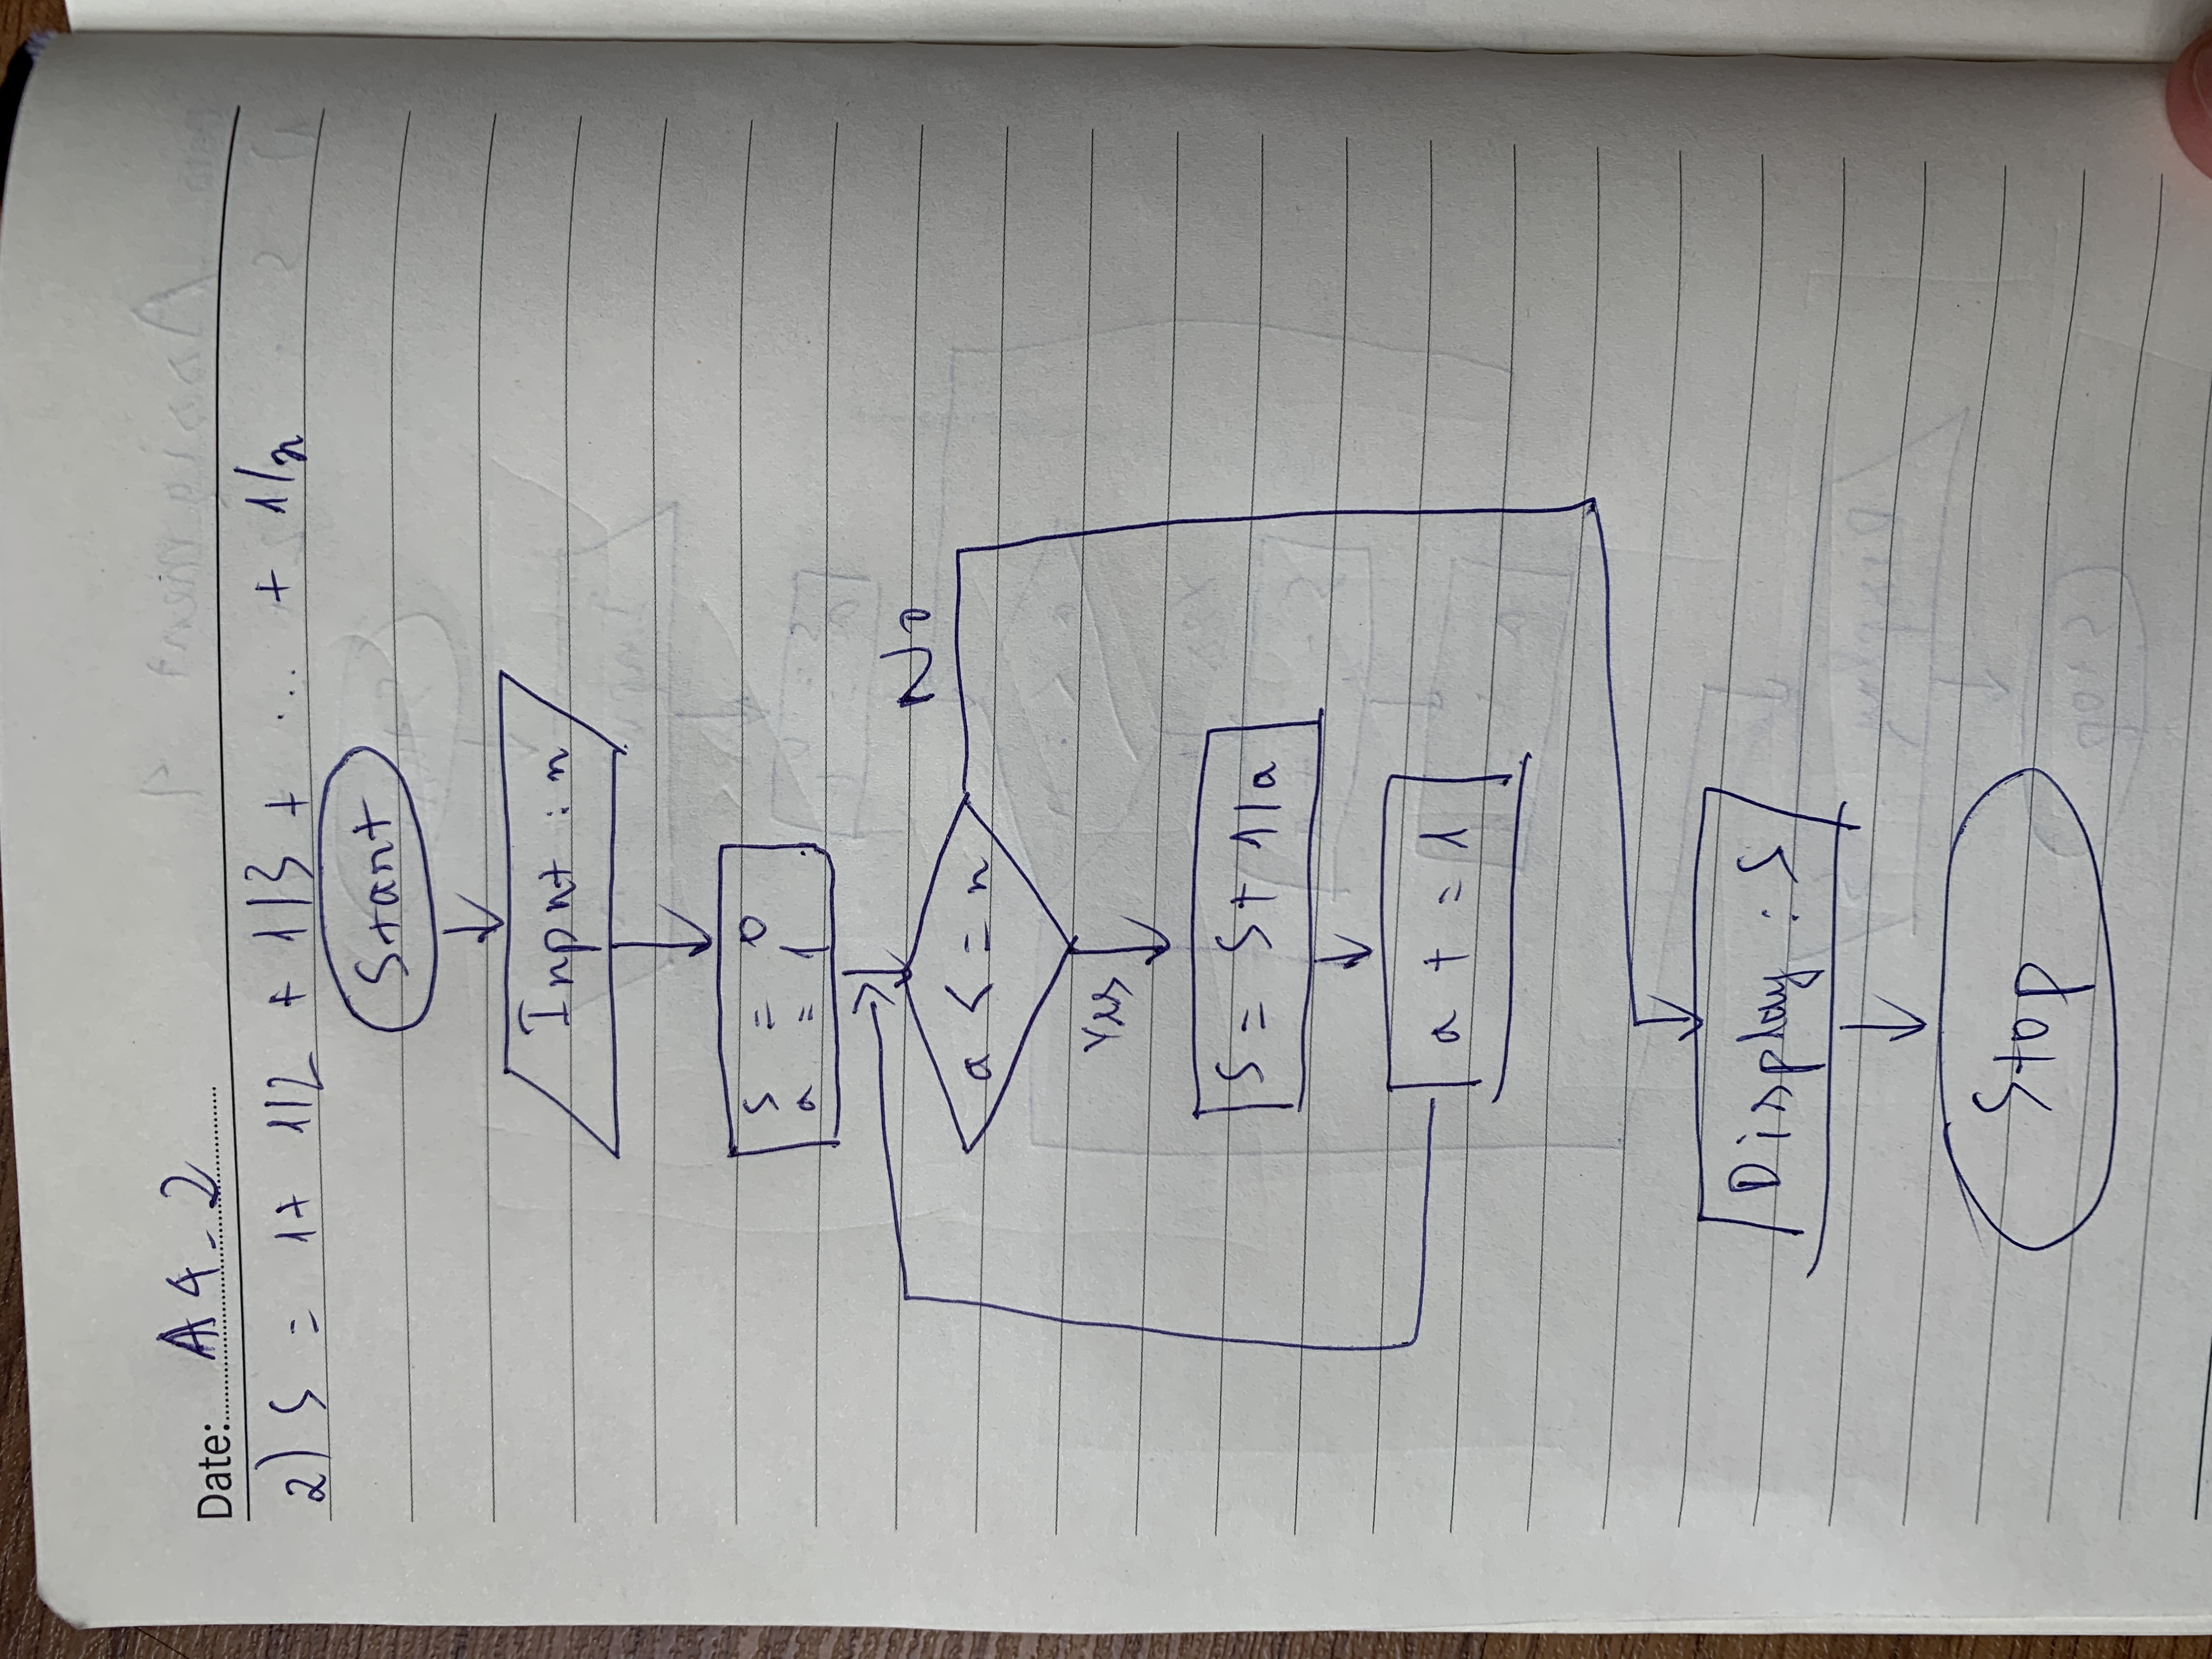 Date: A4-2
2) S = 1 + 1/2 + 1/3 + ... + 1/n
Start
Input : n
S = 0
a = 1
a < = n
No
Yes
S = S + 1/a
a + = 1
Display : S
Stop